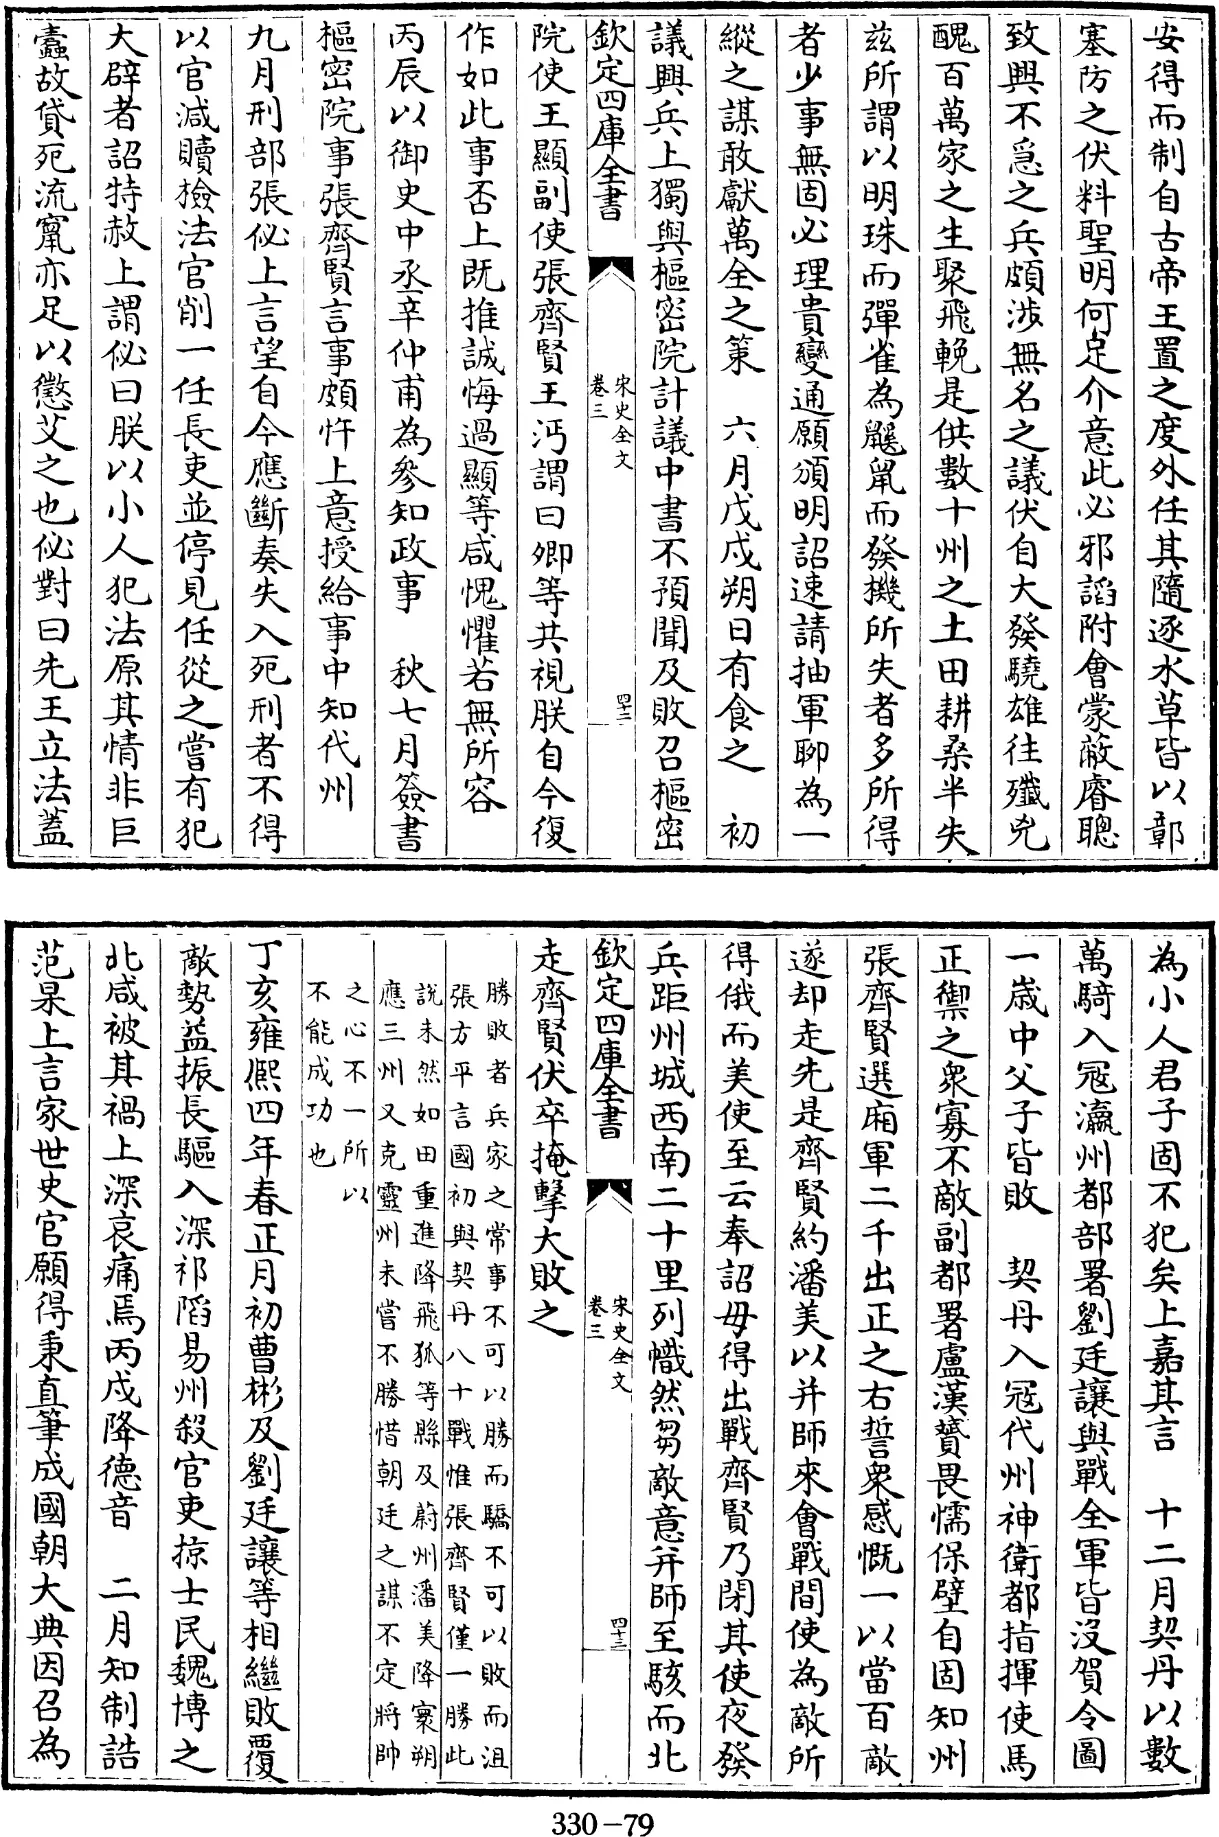 安得而制自古帝王置之度外任其隨逐水草皆以鄣
塞防之伏料聖明何足介意此必邪謟附會蒙蔽睿聰
致興不急之兵頗涉無名之議伏自大發驍雄往殲兇
醜百萬家之生聚飛輓是供數十州之土田耕桑半失
兹所謂以明珠而彈雀為鼷䑕而發機所失者多所得
者少事無固必理貴變通願頒明詔速請抽軍聊為一
縱之謀敢獻萬全之策　六月戊戌朔日有食之　初
議興兵上獨與樞密院計議中書不預聞及敗召樞密
欽定四庫全書
宋史全文
卷三
四十二
院使王顯副使張齊賢王沔謂曰卿等共視朕自今復
作如此事否上既推誠悔過顯等咸愧懼若無所容
丙辰以御史中丞辛仲甫為參知政事　秋七月簽書
樞密院事張齊賢言事頗忤上意授給事中知代州
九月刑部張佖上言望自今應斷奏失入死刑者不得
以官減贖檢法官削一任長吏並停見任從之嘗有犯
大辟者詔特赦上謂佖曰朕以小人犯法原其情非巨
蠧故貸死流竄亦足以懲艾之也佖對曰先王立法蓋
為小人君子固不犯矣上嘉其言　十二月契丹以數
萬騎入冦瀛州都部署劉廷讓與戰全軍皆沒賀令圖
一歲中父子皆敗　契丹入冦代州神衛都指揮使馬
正禦之衆寡不敵副都署盧漢贇畏懦保壁自固知州
張齊賢選廂軍二千出正之右誓衆感慨一以當百敵
遂却走先是齊賢約潘美以并師來會戰間使為敵所
得俄而美使至云奉詔毋得出戰齊賢乃閉其使夜發
兵距州城西南二十里列幟然芻敵意并師至駭而北
欽定四庫全書
宋史全文
卷三
四十三
走齊賢伏卒掩擊大敗之
勝敗者兵家之常事不可以勝而驕不可以敗而沮
張方平言國初與契丹八十戰惟張齊賢僅一勝此
説未然如田重進降飛狐等縣及蔚州潘美降寰朔
應三州又克靈州未嘗不勝惜朝廷之謀不定將帥
之心不一所以
不能成功也
丁亥雍熈四年春正月初曹彬及劉廷讓等相繼敗覆
敵勢益振長驅入深祁䧟易州殺官吏掠士民魏博之
北咸被其禍上深哀痛焉丙戌降德音　二月知制誥
范杲上言家世史官願得秉直筆成國朝大典因召為
330-79